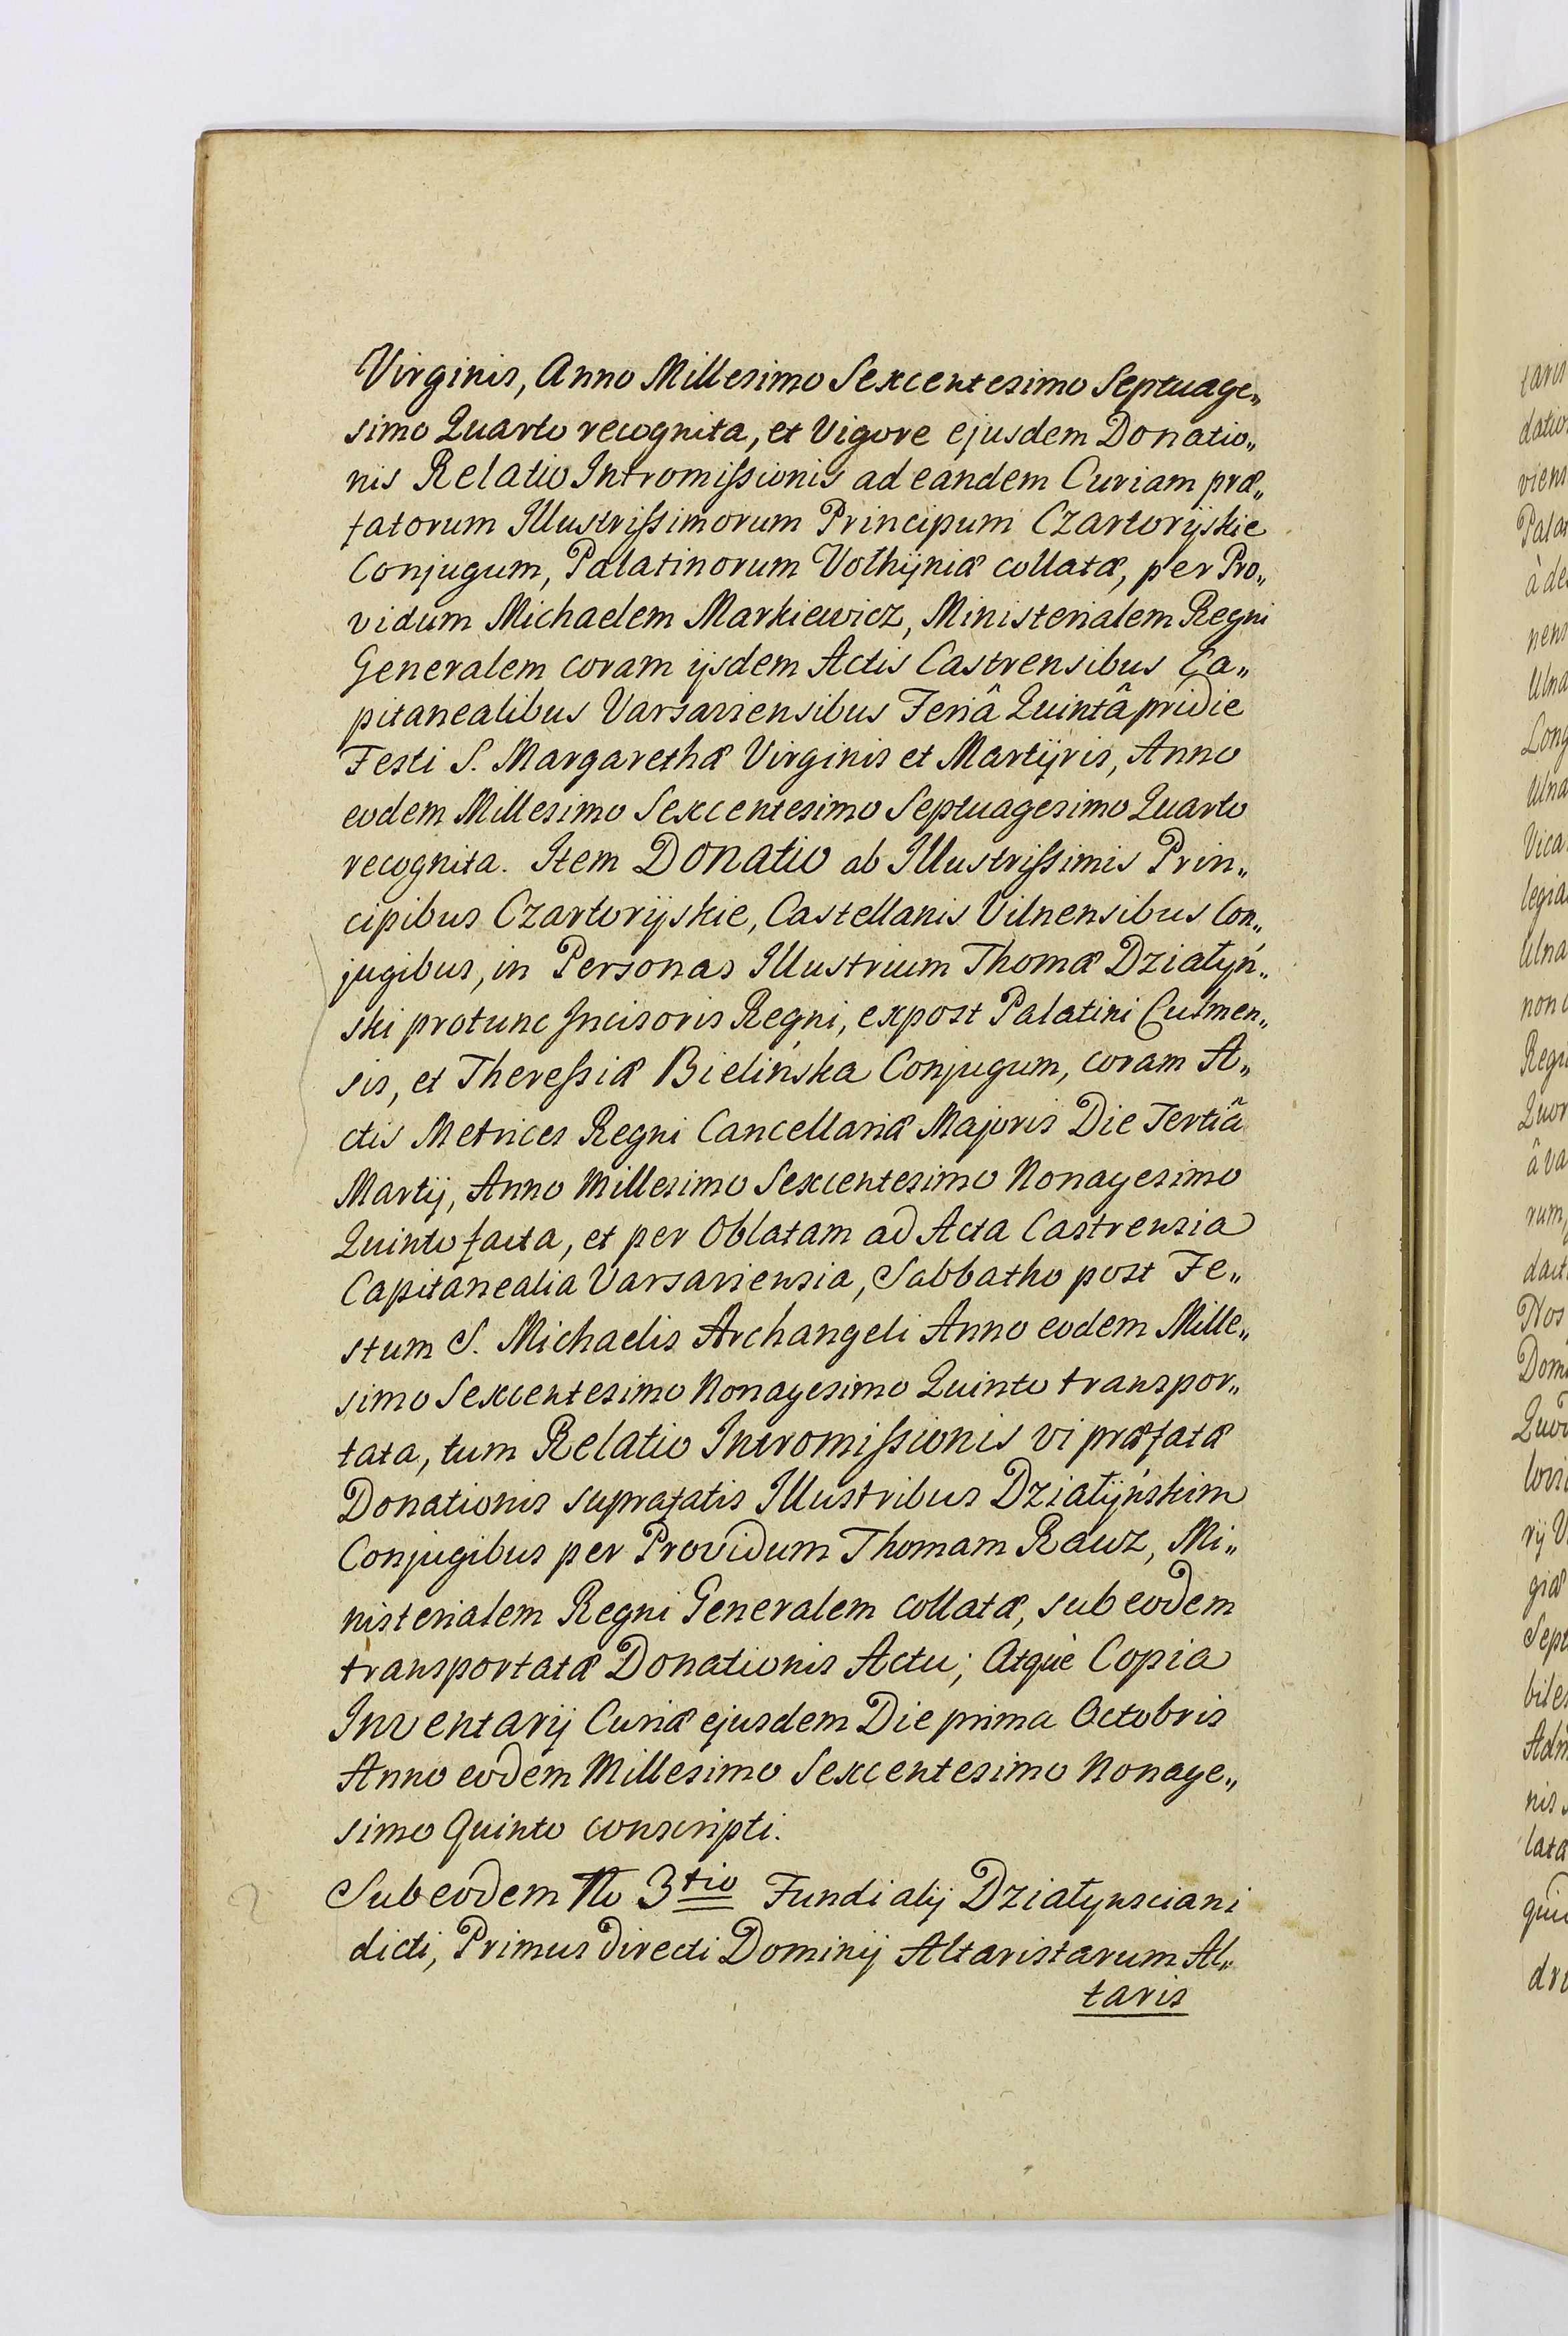 Virginis, Anno Millesimo Sexcentesimo Septuage„
simo Quarto recognita, et Vigore ejusdem Donatio„
nis Relatio Intromißionis ad eandem Curiam præ„
fatorum Illustrißimorum Principum Czartorÿskie
Conjugum, Palatinorum Volhÿniæ collatæ, per Pro„
vidum Michaelem Markiewicz, Ministerialem Regni
Generalem coram ijsdem Actis Castrensibus Ca„
pitanealibus Varsaviensibus Feriâ Quintâ pridie
Festi S. Margarethæ Virginis et Martÿris, Anno
eodem Millesimo Sexcentesimo Septuagesimo Quarto
recognita. Item Donatio ab Illustrißimis Prin„
cipibus Czartorÿskie, Castellanis Vilnensibus Con„
jugibus, in Personas Illustrium Thomæ Działyń„
ski protunc Incisoris Regni, expost Palatini Culmen„
sis, et Thereßiæ Bielińska Conjugum, coram A„
ctis Metrices Regni Cancellariæ Majoris Die Tertiâ
Martij, Anno Millesimo Sexcentesimo Nonagesimo
Quinto facta, et per Oblatam ad Acta Castrensia
Capitanealia Varsaviensia, Sabbatho post Fe„
stum S. Michaelis Archangeli Anno eodem Mille„
simo Sexcentesimo Nonagesimo Quinto transpor„
tata, tum Relatio Intromißionis vi præfatæ
Donationis suprafatis Illustribus Działÿńskim
Conjugibus per Providum Thomam Rawz, Mi„
nisterialem Regni Generalem collatæ, sub eodem
transportatæ Donationis Actu; Atquè Copia
Inventarij Curiæ ejusdem Die prima Octobris
Anno eodem Millesimo Sexcentesimo Nonage„
simo Quinto conscripti.
Sub eodem No 3tio Fundi alij Działynsciani
dicti, Primus directi Dominij Altaristarum Al„
taris
taris
viens
Palat
à de
nens
Ulna
Long
Ulna
Vica
legia
Ulna
non
Regi
Quor
â va
rum,
Nos
Domi
rij V
giæ
Sept
biles
Adm
nis
lata